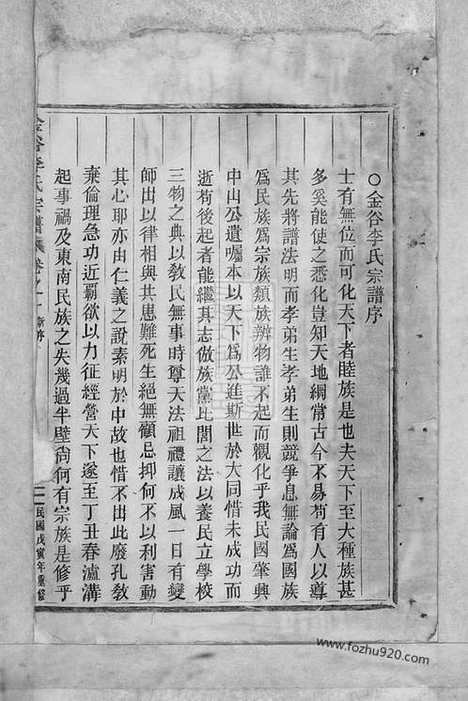 ○金谷李氏宗譜序
士有無位而可化天下者睦族是也夫天下至大種族甚
多奚能使之悉化豈知天地綱常古今不易苟有人以導
其先將譜法明而孝弟生孝弟生則競爭息無論為國族
為民族為宗族類族辨物誰不起而觀化乎我民國肇興
中山公遺囑本以天下為公進斯世於大同惜未成功而
逝苟後起者能繼其志倣族黨比閭之法以養民立學校
三物之典以敎民無事時尊天法祖禮讓成風一日有變
師出以律相與共患難死生絕無顧忌抑何不以利害動
其心耶亦由仁義之說素明於中故也惜不出此廢孔敎
棄倫理急功近覇欲以力征經營天下遂至丁丑春瀘溝
起事禍及東南民族之失幾過半壁尙何有宗族是修乎
金谷李氏宗譜
卷之一
民國戊寅年重修
www.fozhu920.com